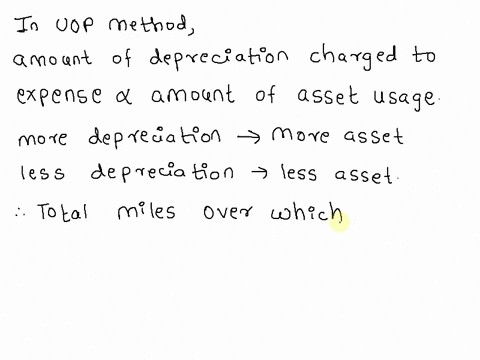 In UOP method,
amount of depreciation charged to
expense ∝ amount of asset usage.
more depreciation → more asset
less depreciation → less asset.
∴ Total miles over which